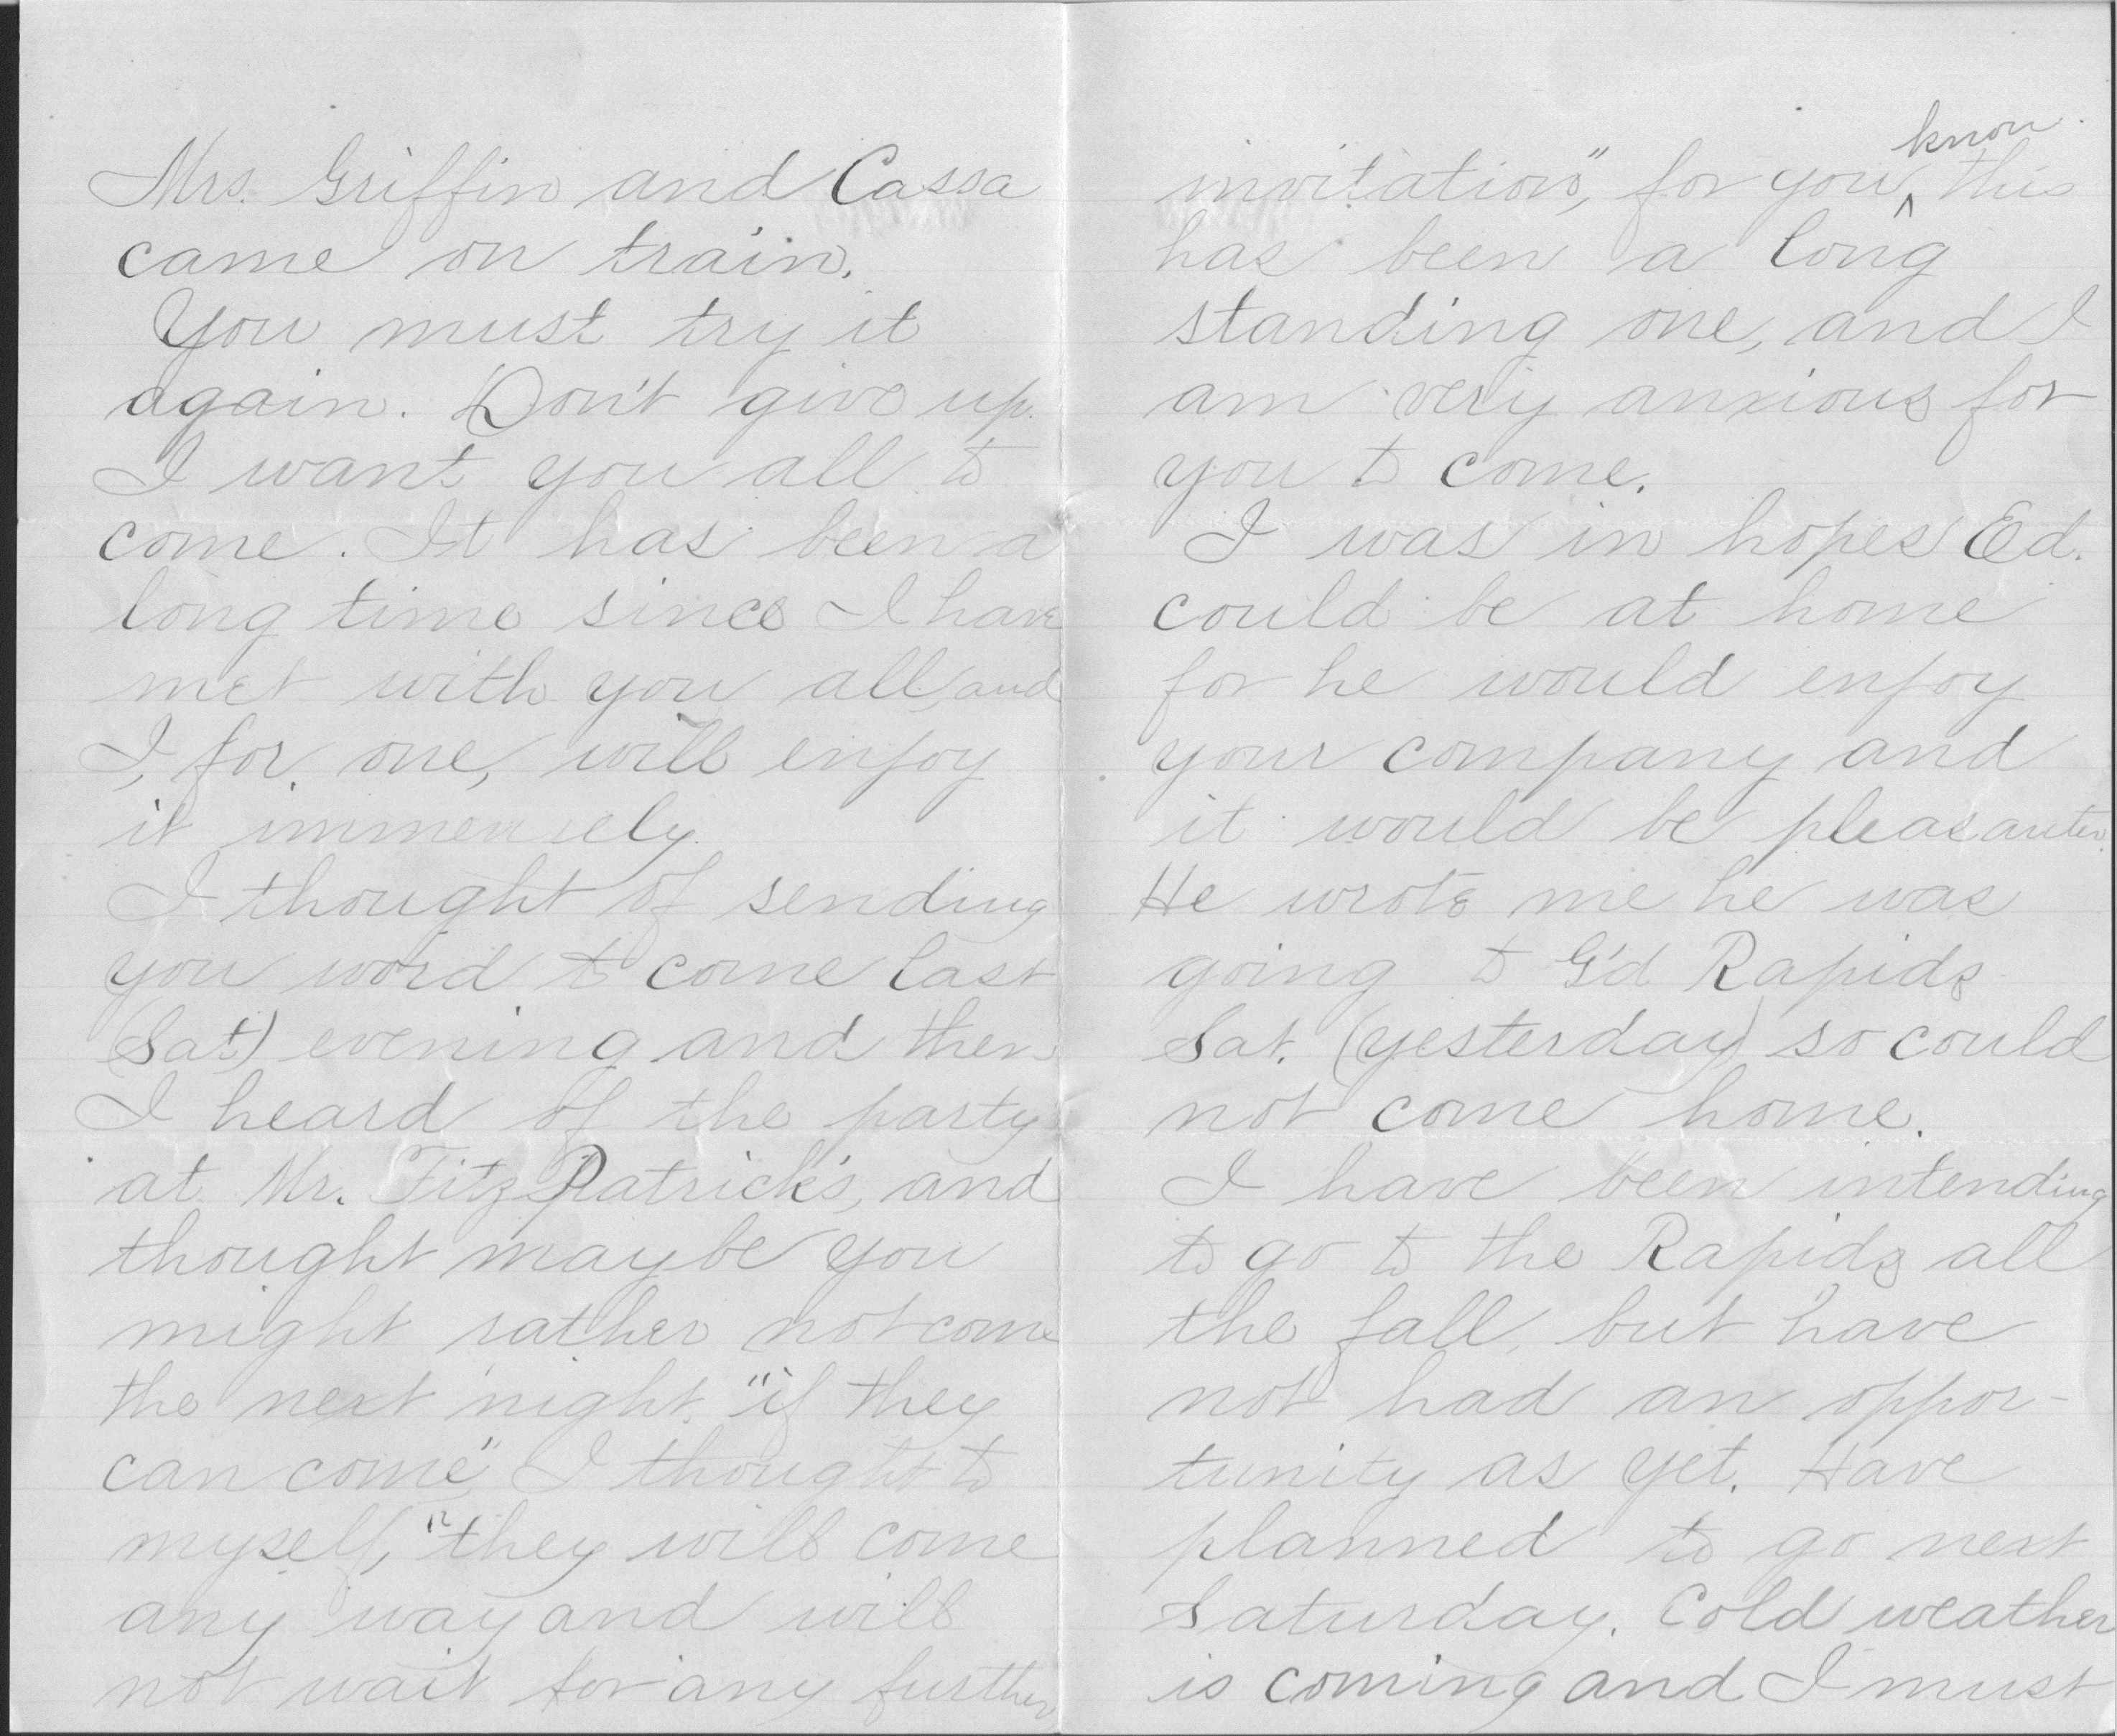 Mrs. Griffin and Cassa
came on train.
You must try it
again. Don't give up.
I want you all to
come. It has been a
long time since I have
met with you all, and
I, for one, will enjoy
it immensely.
I thought of sending
you word to come last
(Sat) evening and then
I heard of the party
at Mr. FitzPatrick's, and
thought maybe you
might rather not come
the next night. "if they
can come", I thought to
myself, "they will come
any way and will
not wait for any further
invitation", for you know this
has been a long
standing one, and I
am very anxious for
you to come.
I was in hopes Ed.
could be at home
for he would enjoy
your company and
it would be pleasanter.
He wrote me he was
going to G'd Rapids
Sat. (yesterday) so could
not come home.
I have been intending
to go to the Rapids all
the fall, but have
not had an oppor-
tunity as yet. Have
planned to go next
Saturday. Cold weather
is coming and I must